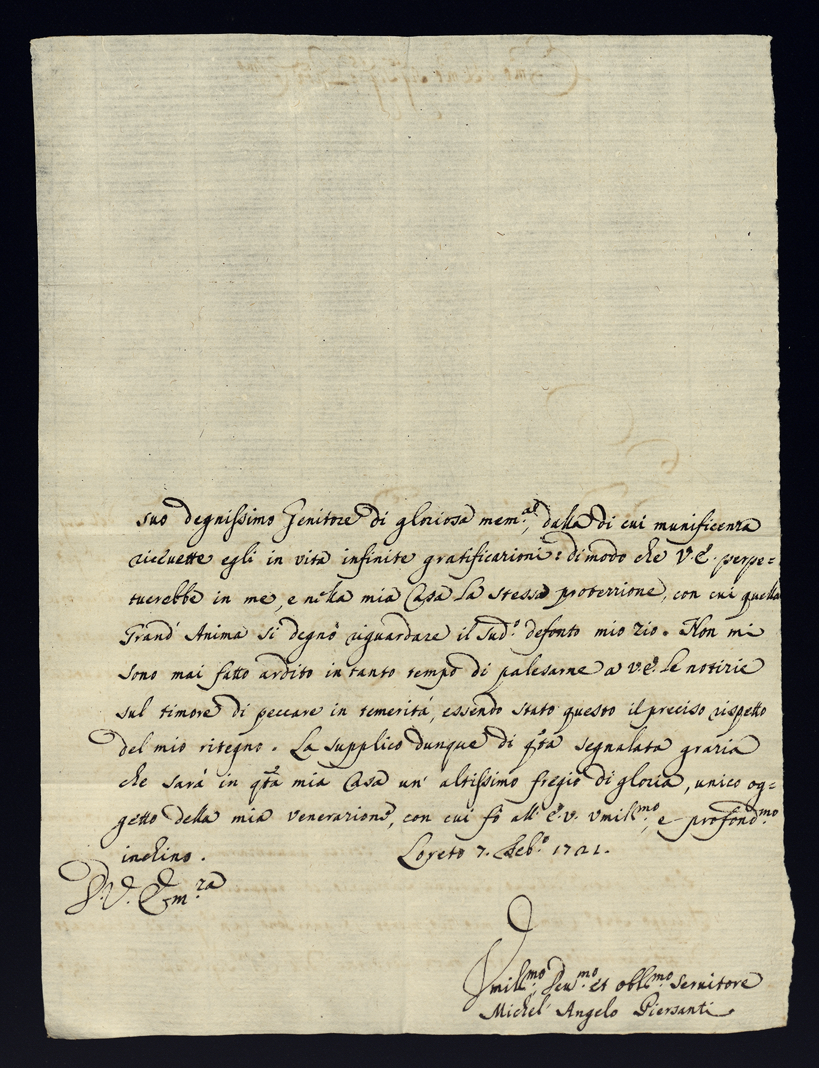 suo degnissimo Genitore di gloriosa mem.a, dalla di cui munificenza
riceuette egli in vita infinite gratificazioni: dimodo che V.E. perpe=
tuerebbe in me, e nella mia Casa la stessa protezzione, con cui quella
Grand' Anima si degnò riguardare il sud.o defonto mio zio. Non mi
sono mai fatto ardito in tanto tempo di palesarne a V.E. le notizie
sul timore di peccare in temerità, essendo stato questo il preciso rispetto
del mio ritegno. La supplico dunque di q.ta segnalata grazia
che sarà in q.ta mia Casa un' altissimo fregio di gloria, unico og=
getto della mia venerazione, con cui fò all' E.V. vmil.mo, e profond.mo
inchino. Loreto 7. Feb.o 1721.
D. V. Em.za
Vmil.mo Deu.mo et obl.mo seruitore
Michel' Angelo Piersanti